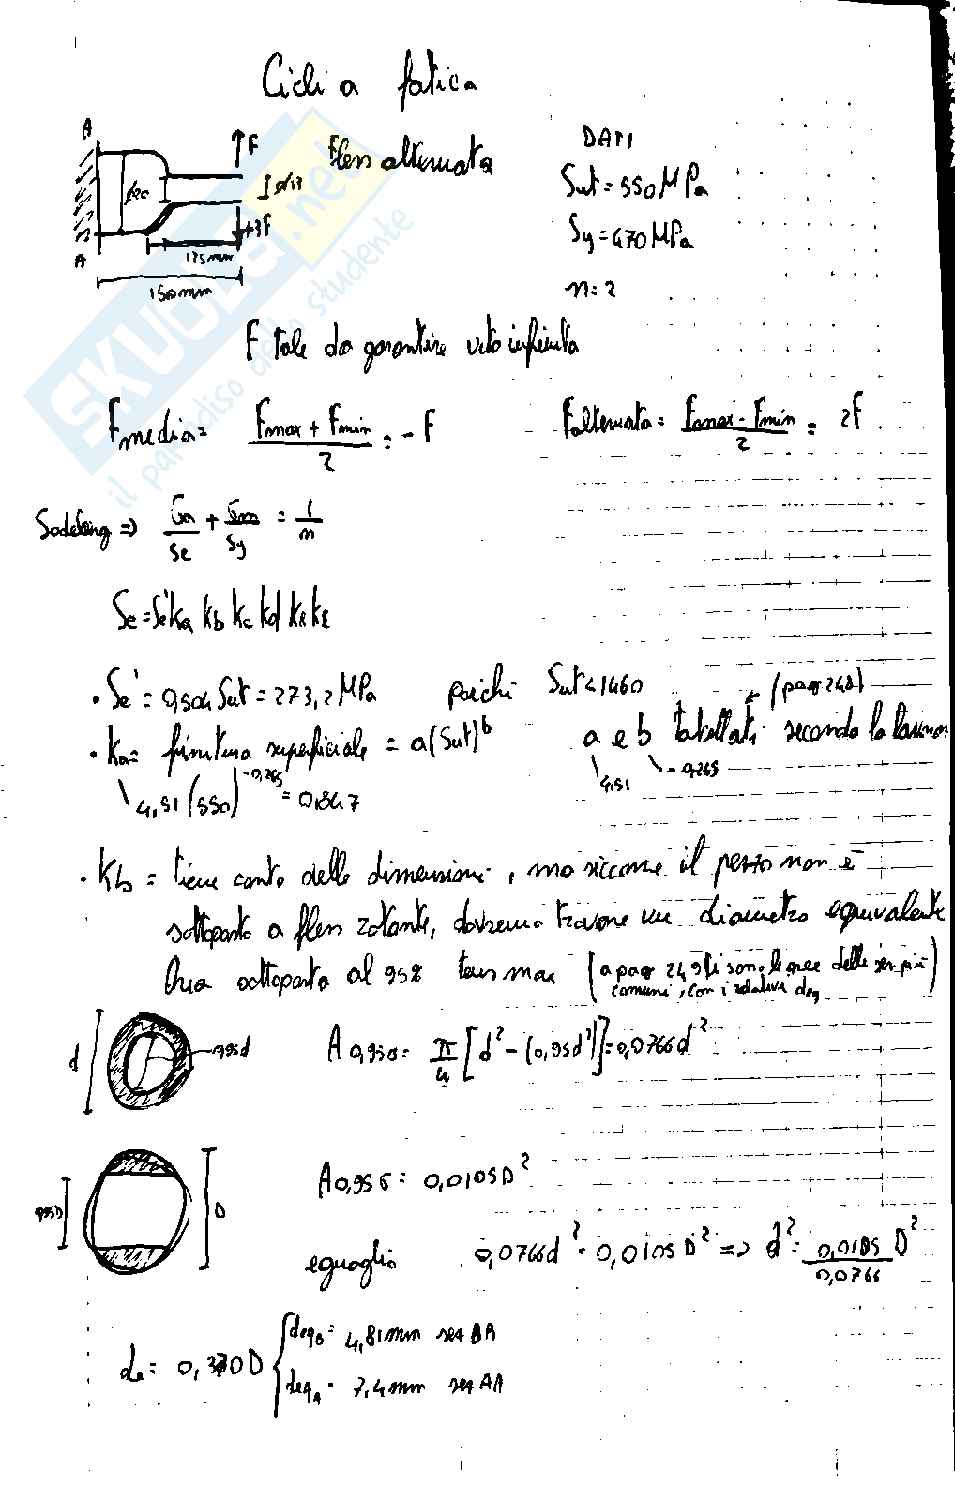 Cicli a fatica
A
F
Fless alternata
DATI
Sut = 550 MPa
φ20
φ13
+3F
Sy = 470 MPa
A
125mm
150mm
n = 2
F tale da garantire vita infinita
Fmedia = Fmax + Fmin / 2 = - F
Falternata = Fmax - Fmin / 2 = 2F
Soderberg => σa/Se + σm/Sy = 1/n
Se = Se' ka kb kc kd ke kf
• Se' = 0,504 Sut = 273,2 MPa poichè Sut < 1460 (pag 248)
• Ka = finitura superficiale = a(Sut)^b a e b tabellati secondo la
4,51 (550)^-0,265 = 0,847
4,51 -0,265
• Kb = tiene conto delle dimensioni, ma siccome il pezzo non è
sottoposto a fless rotante, dovremo trovare un diametro equivalente
Area sottoposta al 95% tens max (a pag 249 ci sono le aree delle sez più
comuni, con i relativi deq)
d
0,95d
A0,95σ = π/4 [d² - (0,95d²)] = 0,0766d²
0,95D
D
A0,95σ = 0,0105D²
eguaglio 0,0766d² = 0,0105D² => d² = 0,0105/0,0766 D²
de = 0,370D
deqB = 4,81mm sez BB
deqA = 7,4mm sez AA
SKUOLA.net
il paradiso dello studente